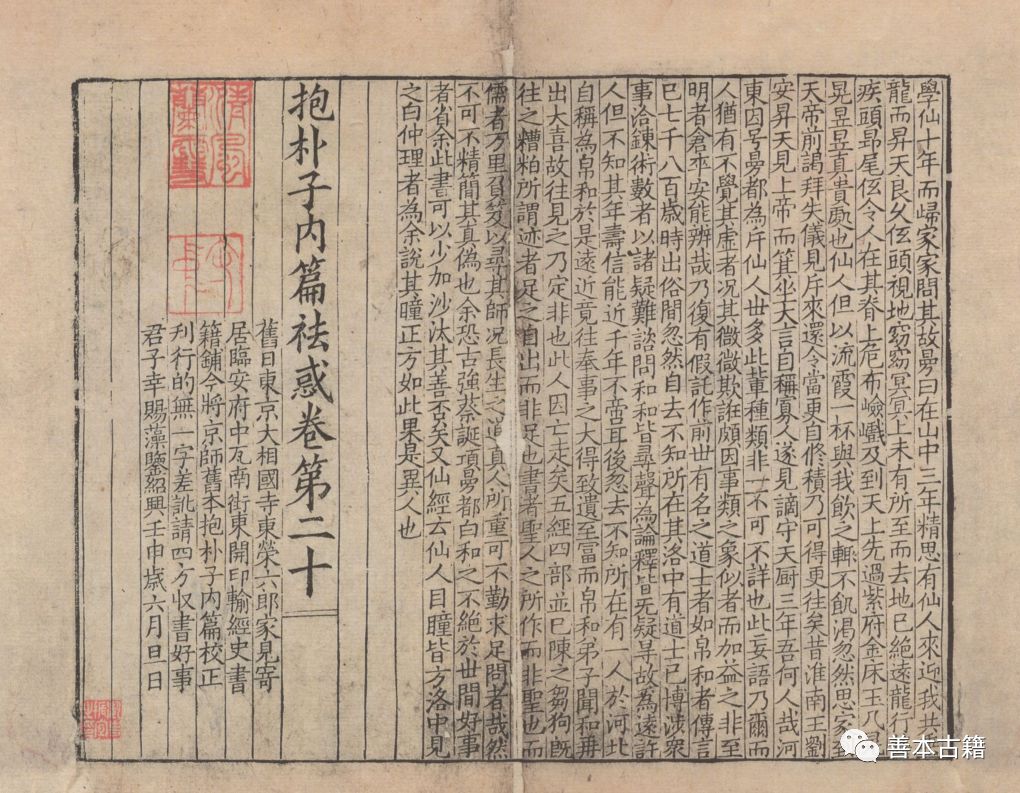 學仙十年而歸家家問其故曼曰在山中三年精思有仙人來迎我共乗
龍而昇天良久低頭視地窈窈冥冥上未有所至而去地已絶遠龍行甚
疾頭昻尾低令人在其脊上危怖嶮巇及到天上先過紫府金床玉几晃
晃昱昱真貴處也仙人但以流霞一杯與我飲之輙不飢渴忽然思家到
天帝前謁拜失儀見斥來還令當更自修積乃可得更往矣昔淮南王劉
安昇天見上帝而箕坐大言自稱寡人遂見謫守天厨三年吾何人哉河
東因号曼都為斥仙人世多此輩種類非一不可不詳也此妄語乃爾而
人猶有不覺其虚者况其微微欺誑頗因事類之象似者而加益之非至
明者倉卒安能辨哉乃復有假託作前世有名之道士者如帛和者傳言
已七千八百歳時出俗間忽然自去不知所在其洛中有道士已博涉衆
事洽鍊術數者以諸疑難諮問和和皆尋聲為論釋皆无疑㝵故為遠許
人但不知其年壽信能近千年不啻耳後忽去不知所在有一人於河北
自稱為帛和於是遠近竟往奉事之大得致遺至富而帛和弟子聞和再
出大喜故往見之乃定非也此人因亡走矣五經四部並已陳之芻狗既
往之糟粕所謂迹者足之自出而非足也書者聖人之所作而非聖也而
儒者万里負笈以尋其師况長生之道真人所重可不勤求足問者哉然
不可不精簡其真偽也余恐古強蔡誕項曼都白和之不絶於世間好事
者省余此書可以少加沙汰其善否矣又仙經云仙人目瞳皆方洛中見
之白仲理者為余說其瞳正方如此果是異人也
抱朴子内篇祛惑卷第二十
舊日東京大相國寺東榮六郎家見寄
居臨安府中瓦南街東開印輸經史書
籍鋪今將京師舊本抱朴子内篇校正
刋行的無一字差訛請四方収書好事
君子幸賜藻鑒紹興壬申歳六月旦日
善本古籍